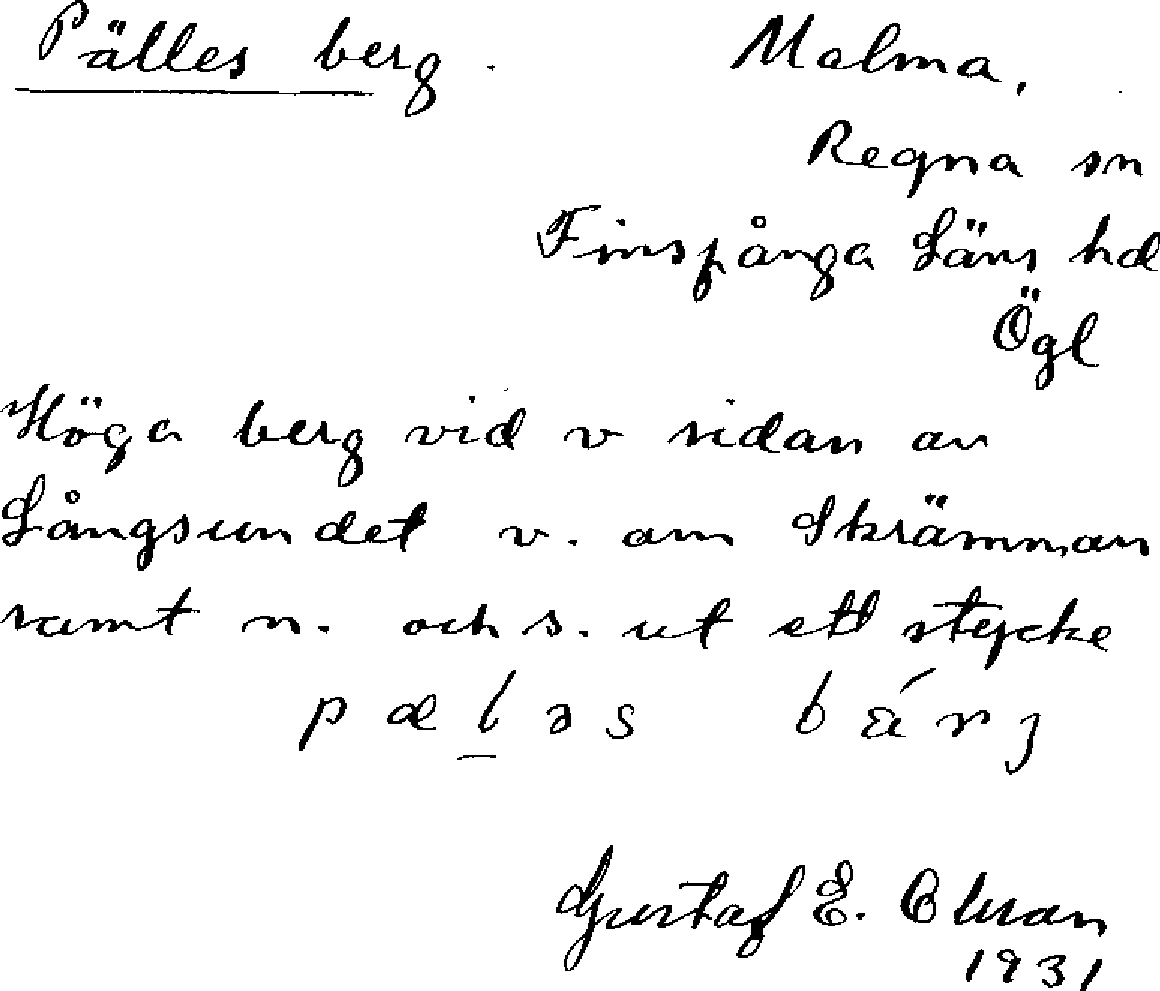 Pälles berg. Malma,
Regna sn
Finspånga Läns hd
Ögl
Höga berg vid v sidan av
Långsundet v. om Skrämman
samt n. och s. ut ett stycke
pæl̲əs bá̈rj
Gustaf E. Olsson
1931